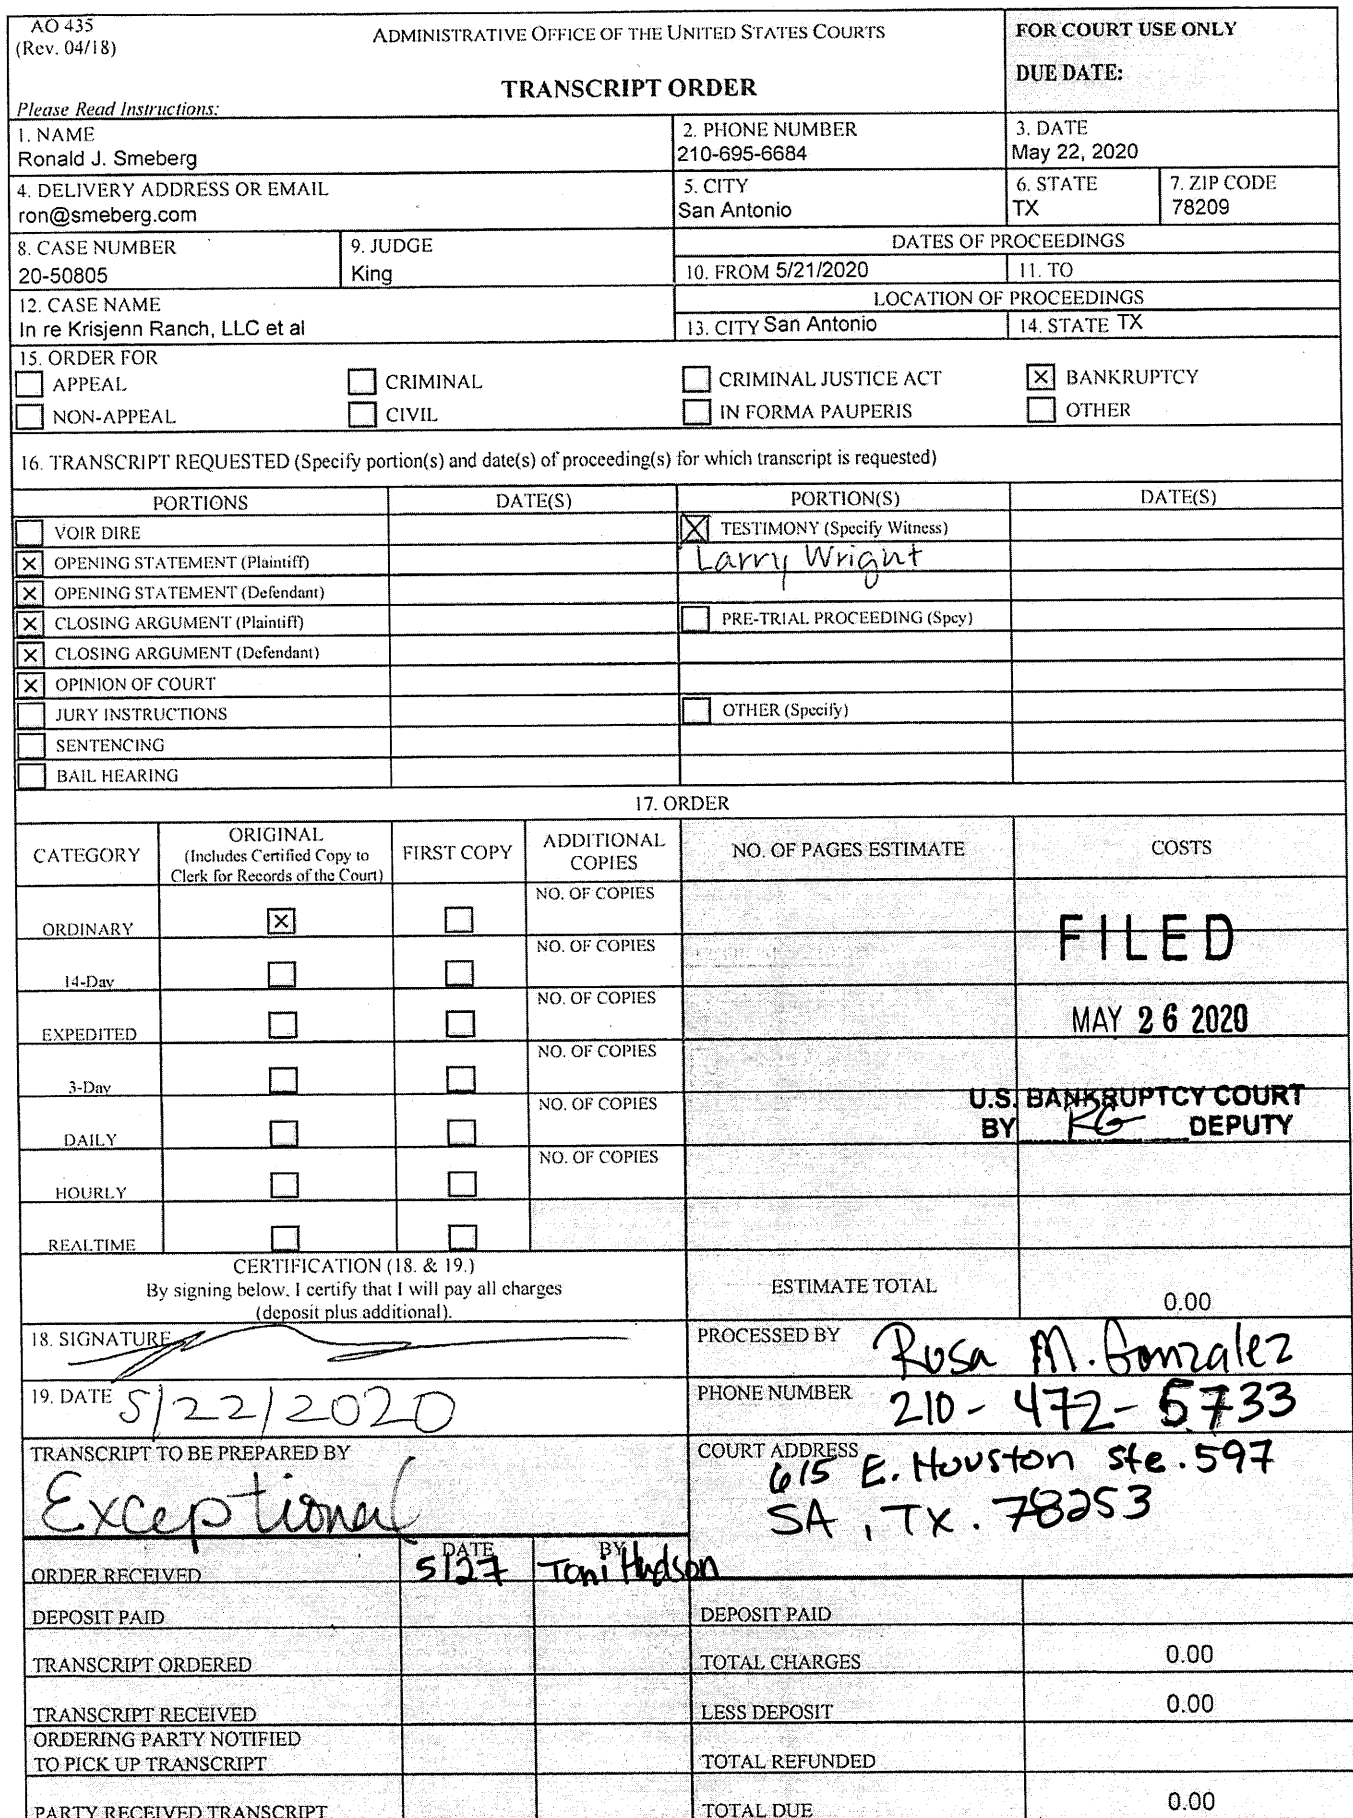 AO 435
(Rev. 04/18)
ADMINISTRATIVE OFFICE OF THE UNITED STATES COURTS
FOR COURT USE ONLY
DUE DATE:
TRANSCRIPT ORDER
Please Read Instructions:
1. NAME
Ronald J. Smeberg
2. PHONE NUMBER
210-695-6684
3. DATE
May 22, 2020
4. DELIVERY ADDRESS OR EMAIL
ron@smeberg.com
5. CITY
San Antonio
6. STATE
TX
7. ZIP CODE
78209
8. CASE NUMBER
20-50805
9. JUDGE
King
DATES OF PROCEEDINGS
10. FROM 5/21/2020
11. TO
12. CASE NAME
In re Krisjenn Ranch, LLC et al
LOCATION OF PROCEEDINGS
13. CITY San Antonio
14. STATE TX
15. ORDER FOR
APPEAL
CRIMINAL
CRIMINAL JUSTICE ACT
BANKRUPTCY
NON-APPEAL
CIVIL
IN FORMA PAUPERIS
OTHER
16. TRANSCRIPT REQUESTED (Specify portion(s) and date(s) of proceeding(s) for which transcript is requested)
PORTIONS DATE(S) PORTION(S) DATE(S)
VOIR DIRE
TESTIMONY (Specify Witness)
OPENING STATEMENT (Plaintiff)
Larry Wright
OPENING STATEMENT (Defendant)
CLOSING ARGUMENT (Plaintiff)
PRE-TRIAL PROCEEDING (Spcy)
CLOSING ARGUMENT (Defendant)
OPINION OF COURT
JURY INSTRUCTIONS
OTHER (Specify)
SENTENCING
BAIL HEARING
17. ORDER
CATEGORY
ORIGINAL
(Includes Certified Copy to
Clerk for Records of the Court)
FIRST COPY
ADDITIONAL
COPIES
NO. OF PAGES ESTIMATE
COSTS
NO. OF COPIES
ORDINARY
FILED
NO. OF COPIES
14-Day
NO. OF COPIES
EXPEDITED
MAY 26 2020
NO. OF COPIES
3-Day
NO. OF COPIES
DAILY
U.S. BANKRUPTCY COURT
BY RG DEPUTY
NO. OF COPIES
HOURLY
REALTIME
CERTIFICATION (18. & 19.)
By signing below, I certify that I will pay all charges
(deposit plus additional).
ESTIMATE TOTAL
0.00
18. SIGNATURE
PROCESSED BY Rosa M. Gonzalez
19. DATE 5/22/2020
PHONE NUMBER 210-472-5733
TRANSCRIPT TO BE PREPARED BY
Exceptional
COURT ADDRESS
615 E. Houston Ste. 597
SA, TX. 78253
DATE BY
ORDER RECEIVED 5/27 Toni Hudson
DEPOSIT PAID
DEPOSIT PAID
TRANSCRIPT ORDERED
TOTAL CHARGES 0.00
TRANSCRIPT RECEIVED
LESS DEPOSIT 0.00
ORDERING PARTY NOTIFIED
TO PICK UP TRANSCRIPT
TOTAL REFUNDED
PARTY RECEIVED TRANSCRIPT
TOTAL DUE 0.00